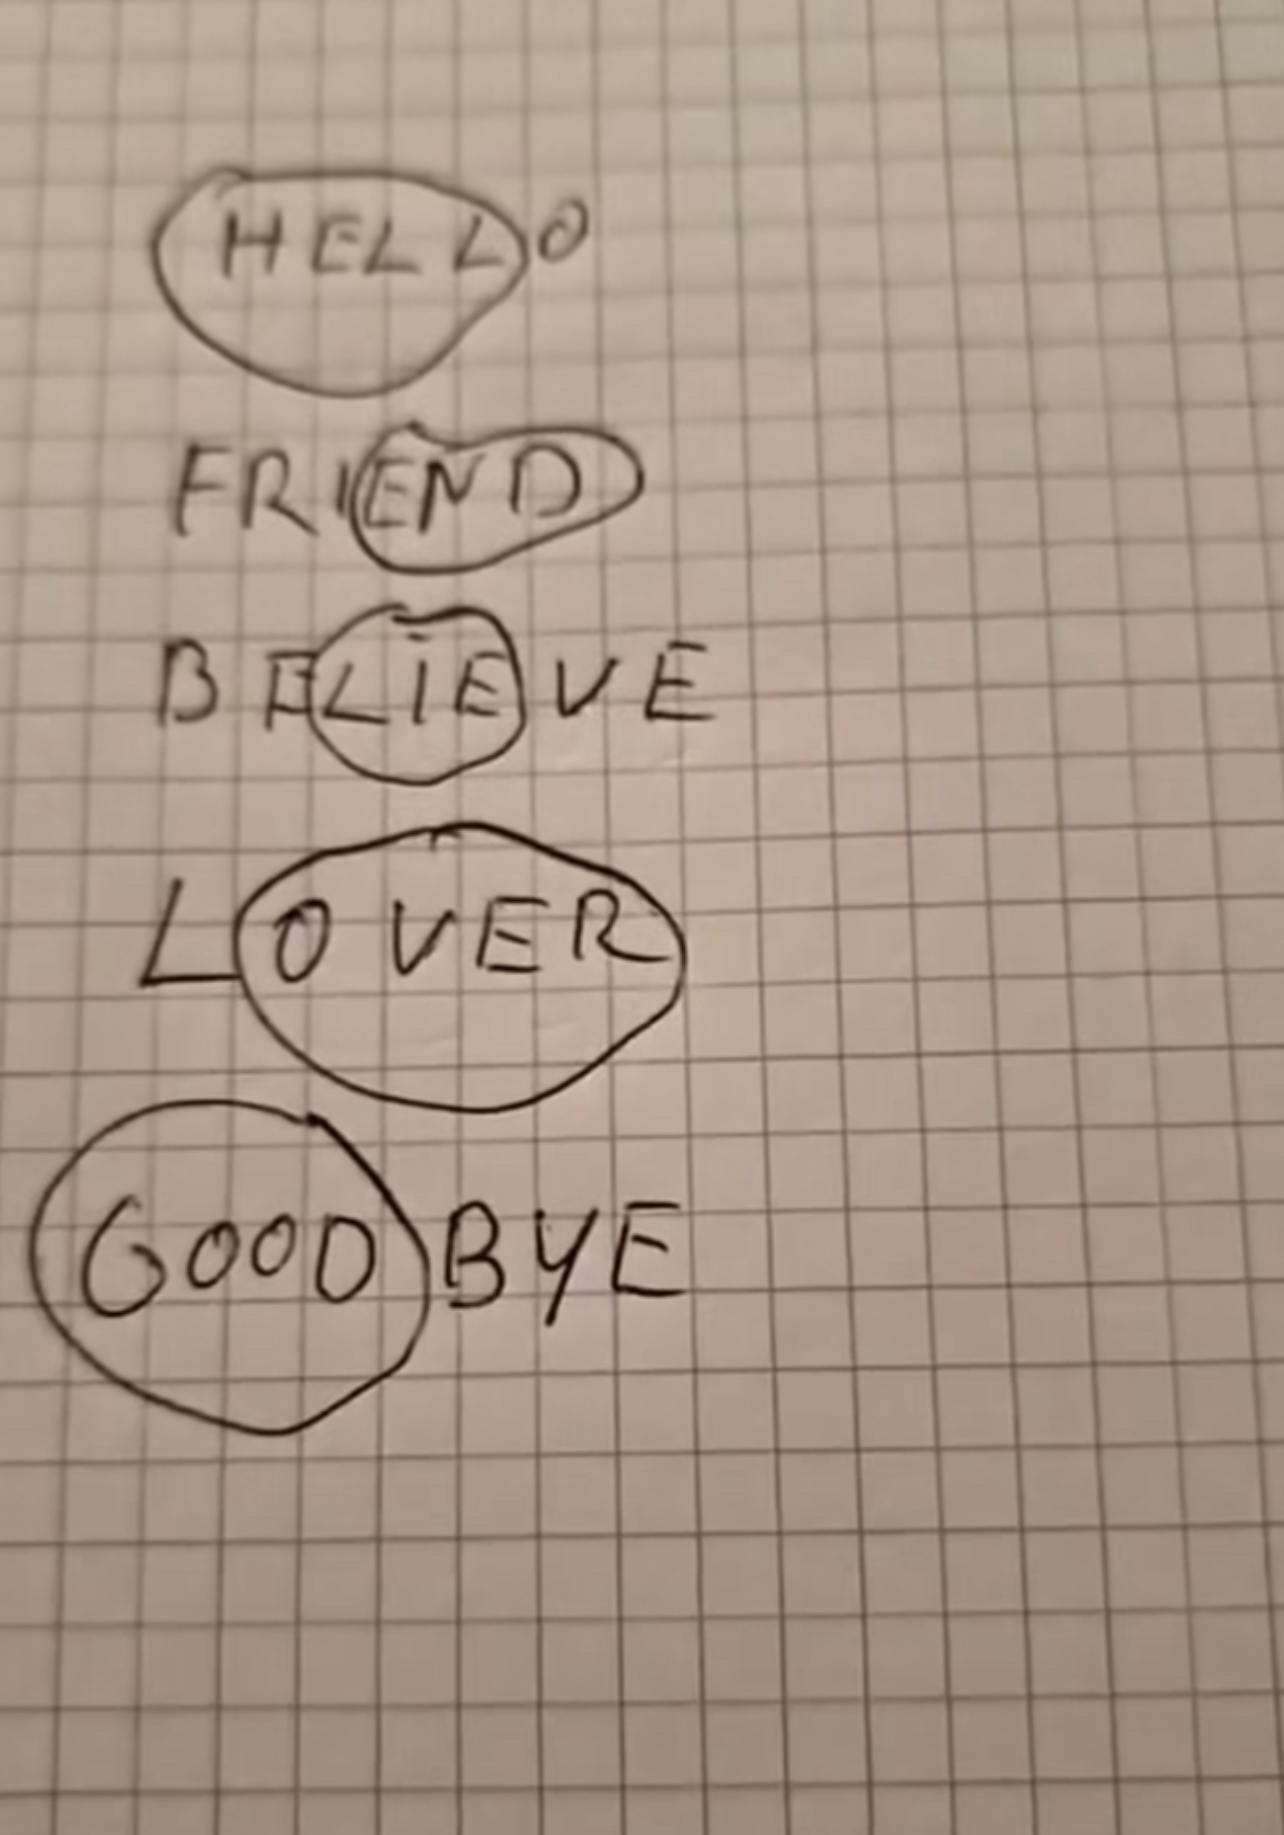 HELLO
FRIEND
BELIEVE
LOVER
GOODBYE